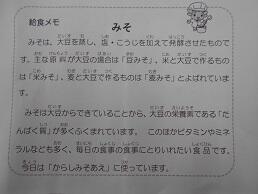 給食メモ
みそ
みそは、大豆を蒸し、塩・こうじを加えて発酵させたもので
す。主な原料が大豆の場合は「豆みそ」、米と大豆で作るもの
は「米みそ」、麦と大豆で作るものは「麦みそ」とよばれていま
す。
みそは大豆からできていることから、大豆の栄養素である「た
んぱく質」が多くふくまれています。このほかビタミンやミネ
ラルなども多く、毎日の食事の食事にとりいれたい食品です。
今日は「からしみそあえ」に使っています。